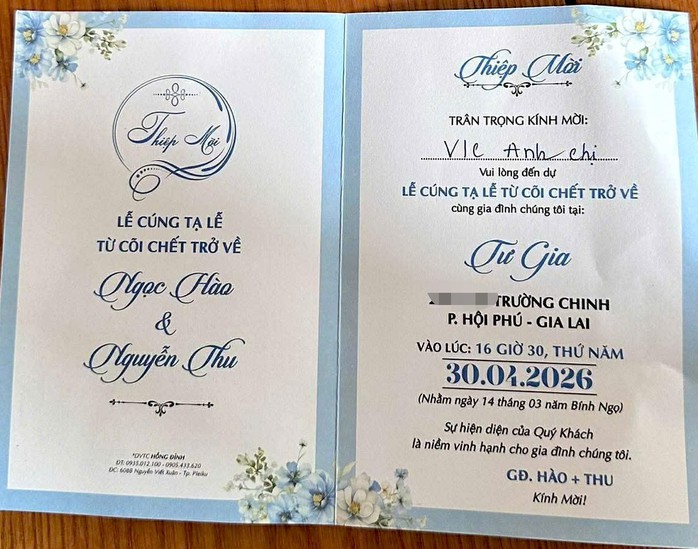 Thiệp Mời
LỄ CÚNG TẠ LỄ
TỪ CÕI CHẾT TRỞ VỀ
Ngọc Hào
&
Nguyễn Thu
*DVTC HỒNG ĐÌNH
ĐT: 0935.012.100 - 0905.433.620
ĐC: 608B Nguyễn Viết Xuân - Tp. Pleiku
Thiệp Mời
TRÂN TRỌNG KÍNH MỜI:
V/C Anh chị
Vui lòng đến dự
LỄ CÚNG TẠ LỄ TỪ CÕI CHẾT TRỞ VỀ
cùng gia đình chúng tôi tại:
Tư Gia
TRƯỜNG CHINH
P. HỘI PHÚ - GIA LAI
VÀO LÚC: 16 GIỜ 30, THỨ NĂM
30.04.2026
(Nhằm ngày 14 tháng 03 năm Bính Ngọ)
Sự hiện diện của Quý Khách
là niềm vinh hạnh cho gia đình chúng tôi.
GĐ. HÀO + THU
Kính Mời!